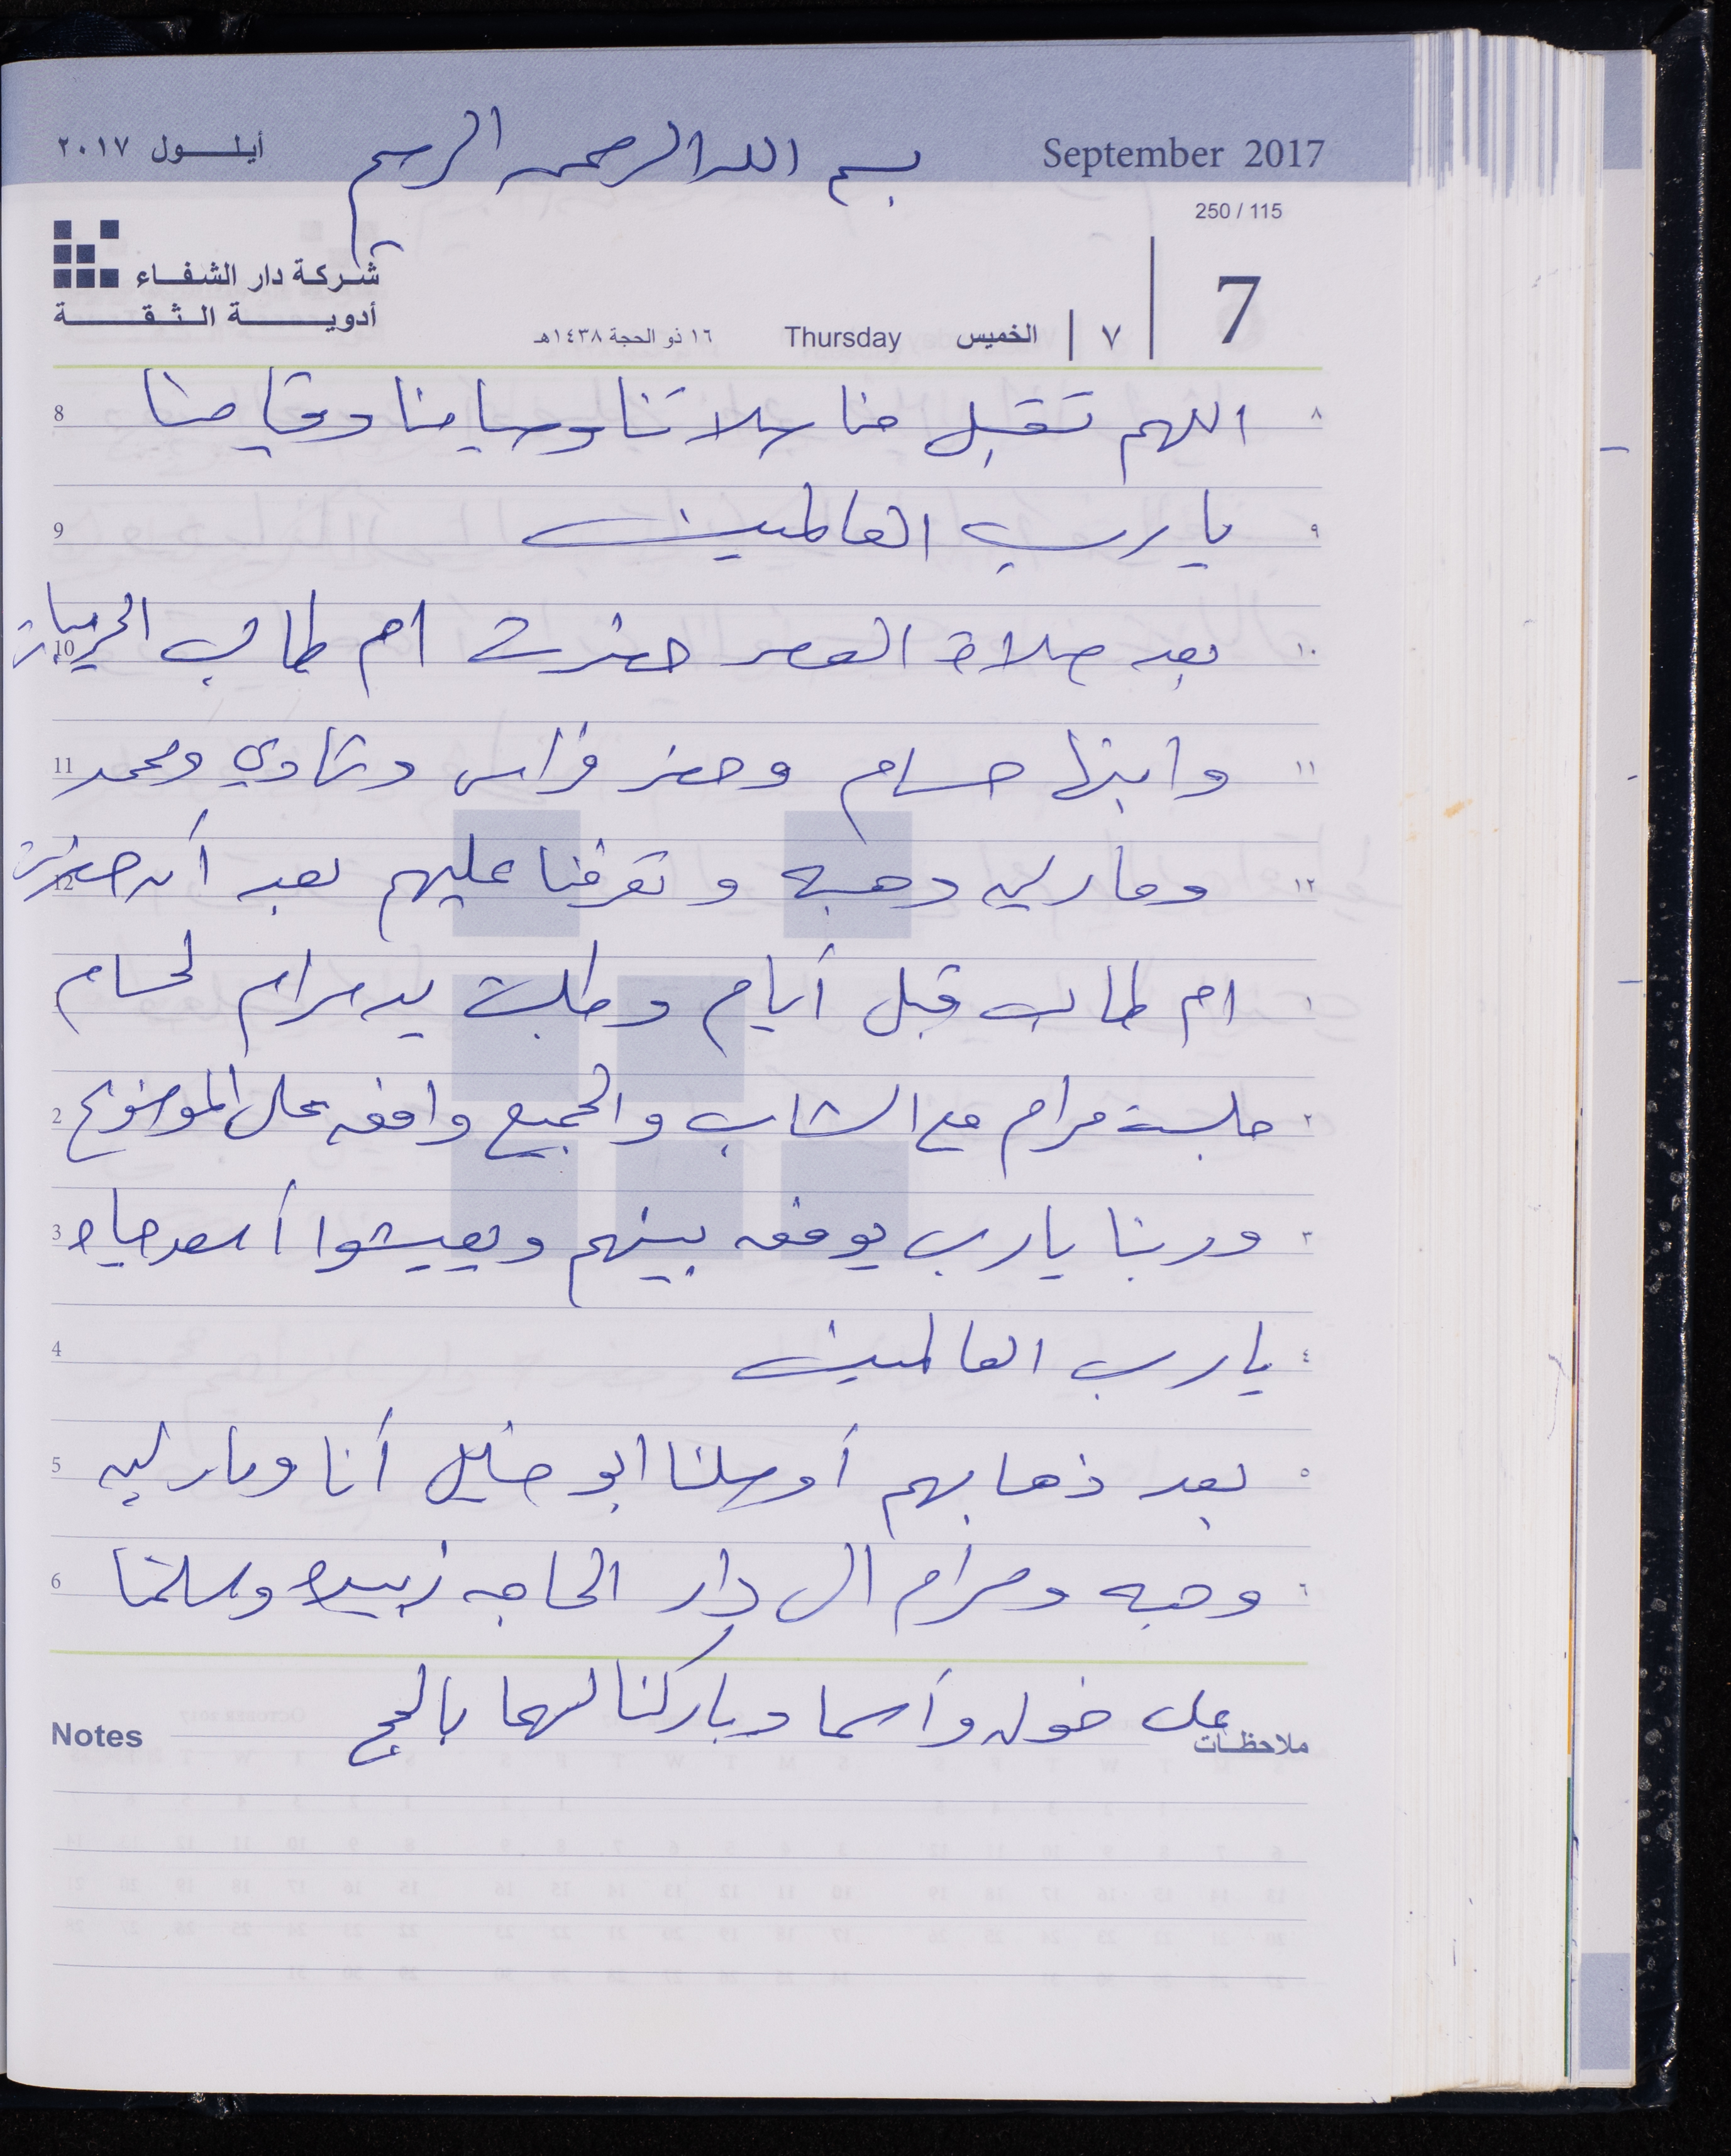 September 2017
بسم الله الرحمن الرحيم
أيلول ٢٠١٧
250 / 115
شركة دار الشفاء
أدوية الثقة
7 ٧ الخميس Thursday ١٦ ذو الحجة ١٤٣٨هـ
8 اللهم تقبل منا صلاتنا وصيامنا وقيامنا ٨
9 يا رب العالمين ٩
10 بعد صلاة العصر حضرت ام طالب ١٠
11 وابنها حسام وحضر فراس وشادي ومحمد ١١
12 ومارلين وهبه وتعرفنا عليهم بعد أن حضرت ١٢
ام طالب قبل أيام وطلبت يد مرام لحسام ١
2 جلست مرام مع الشاب والجميع وافق على الموضوع ٢
3 وربنا يارب يوفق بينهم ويعيشوا أسعد حياه ٣
4 يارب العالمين ٤
5 بعد ذهابهم أوصلنا ابو خليل أنا ومارلين ٥
6 وهبه ومرام الى دار الحاجه زبيده وسلمنا ٦
على خوله وأسما وباركنا لهما بالحج
Notes ملاحظات